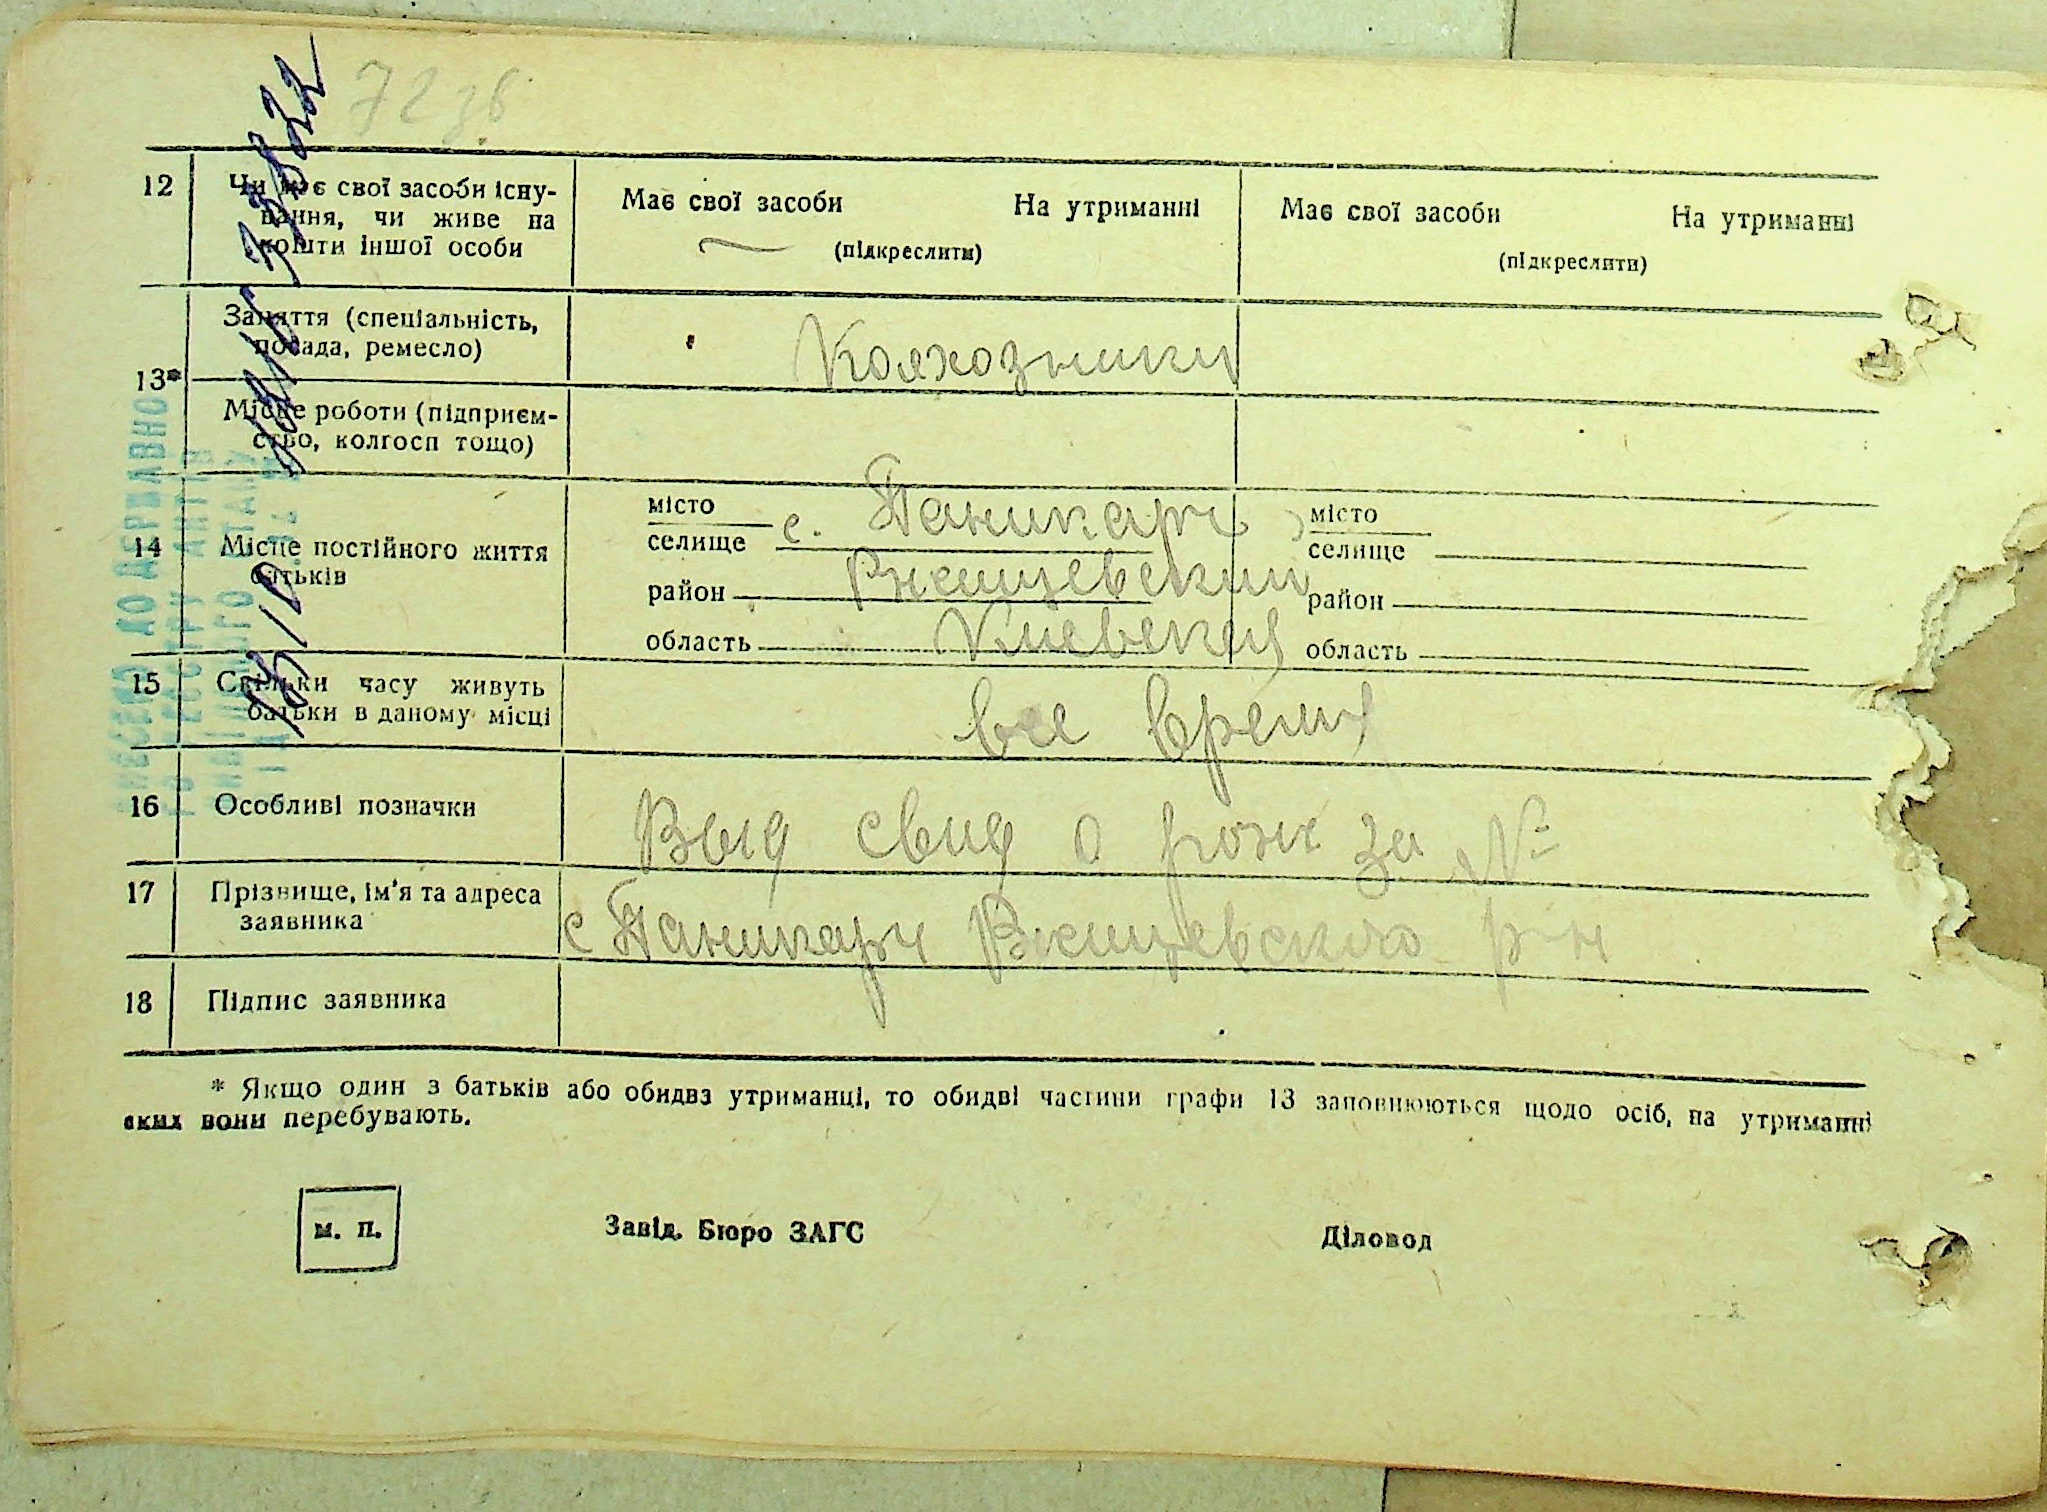 72 зв
12
Чи має свої засоби існу-
вання, чи живе на
кошти іншої особи
Має свої засоби На утриманні
(підкреслити)
Має свої засоби На утриманні
(підкреслити)
13*
Заняття (спеціальність,
посада, ремесло)
Колхозники
Місце роботи (підприєм-
ство, колгосп тощо)
14
Місце постійного життя
батьків
місто
селище с. Паникарч
район Ржищевский
область Киевская
місто
селище
район
область
15
Скільки часу живуть
батьки в даному місці
все время
16
Особливі позначки
Выд свид о рож за №
17
Прізвище, ім'я та адреса
заявника
с Паникарч Ржищевского р-н
18
Підпис заявника
* Якщо один з батьків або обидва утриманці, то обидві частини графи 13 заповнюються щодо осіб, на утриманні
яких вони перебувають.
м. п.
Завід. Бюро ЗАГС
Діловод
ДО ДЕРЖАВНО